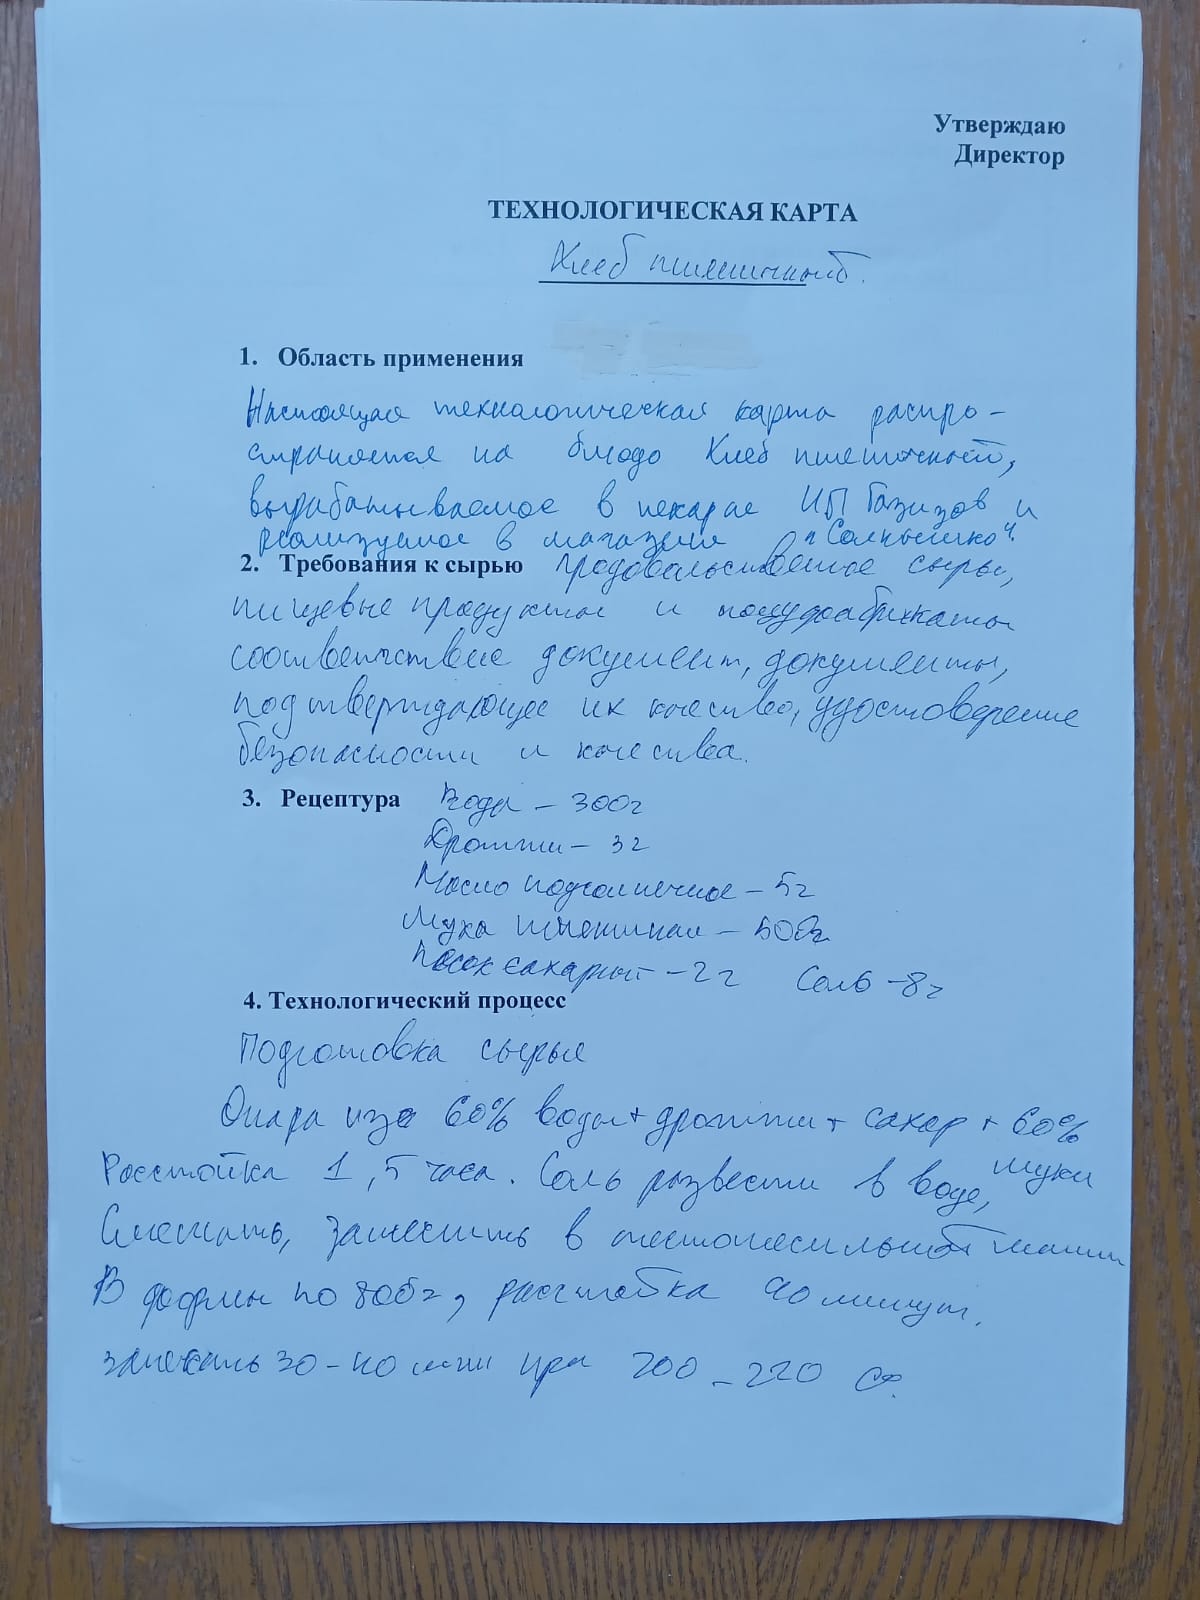 Утверждаю
Директор
ТЕХНОЛОГИЧЕСКАЯ КАРТА
Хлеб пшеничный.
1. Область применения
Настоящая технологическая карта распро-
страняется на блюдо Хлеб пшеничный,
вырабатываемое в пекарне ИП Газизов и
реализуемое в магазине "Солнышко".
2. Требования к сырью продовольственное сырье,
пищевые продукты и полуфабрикаты
соответствие документ, документы,
подтверждающее их качество, удостоверение
безопасности и качества.
3. Рецептура Вода - 300г
Дрожжи - 3г
Масло подсолнечное - 5г
Мука пшеничная - 500г
Песок сахарный - 2г Соль - 8г
4. Технологический процесс
Подготовка сырья
Опара из 60% воды + дрожжи + сахар + 60%
муки
Расстойка 1,5 часа. Соль развести в воде,
Смешать, замесить в тестомесильной машин
В формы по 800г, расстойка 40 минут.
запекать 30-40 мин при 200-220 С°.